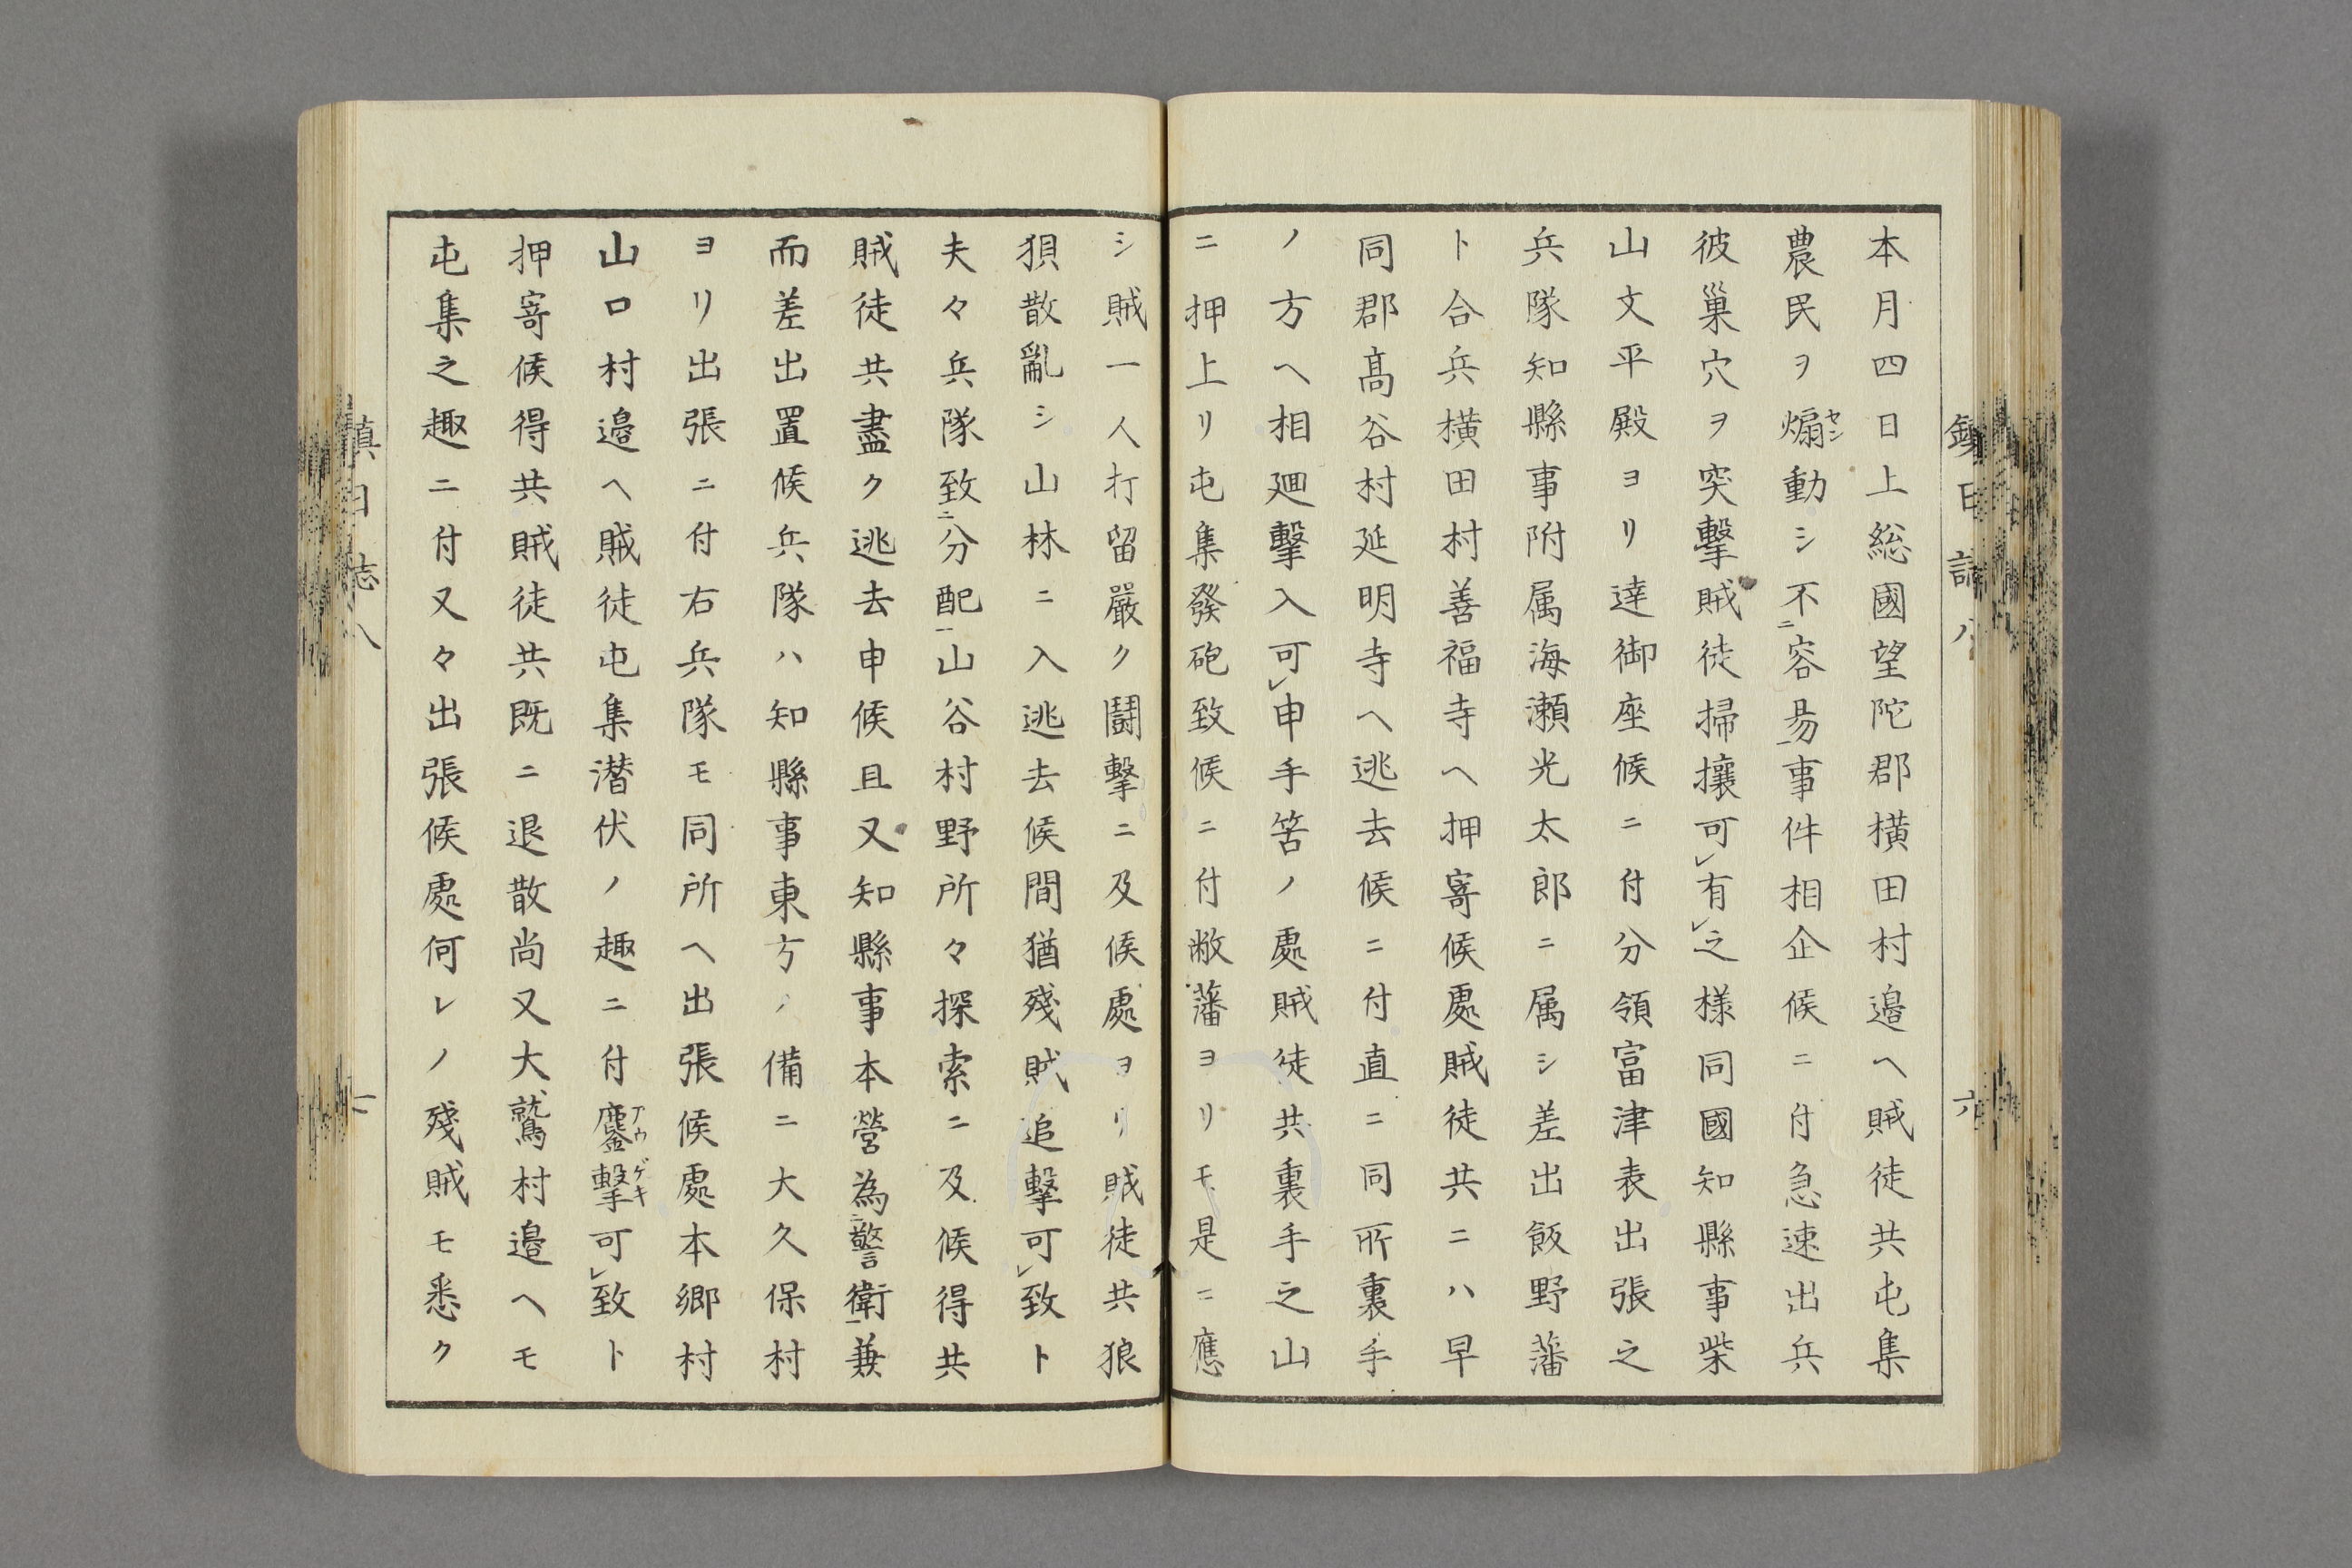 本月四日上総國望陀郡横田村邉ヘ賊徒共屯集
農民ヲ煽セン動シ不二容易一事件相企候ニ付急速出兵
彼巣穴ヲ突擊賊徒掃攘可レ有レ之様同國知縣事柴
山文平殿ヨリ達御座候ニ付分領富津表出張之
兵隊知縣事附属海瀬光太郎ニ属シ差出飯野藩
ト合兵横田村善福寺ヘ押寄候處賊徒共ニハ早
同郡髙谷村延明寺ヘ逃去候ニ付直ニ同所裏手
ノ方ヘ相廻擊入可レ申手筈ノ處賊徒共裏手之山
ニ押上リ屯集發砲致候ニ付敝藩ヨリモ是ニ應
シ賊一人打留嚴ク鬪擊ニ及候處ヨリ賊徒共狼
狽散亂シ山林ニ入逃去候間猶殘賊追擊可レ致ト
夫々兵隊致二分配一山谷村野所々探索ニ及候得共
賊徒共盡ク逃去申候且又知縣事本營為二警衛一兼
而差出置候兵隊ハ知縣事東方ノ備ニ大久保村
ヨリ出張ニ付右兵隊モ同所ヘ出張候處本郷村
山口村邉ヘ賊徒屯集潜伏ノ趣ニ付鏖アウ擊ゲキ可レ致ト
押寄候得共賊徒共既ニ退散尚又大鷲村邉ヘモ
屯集之趣ニ付又々出張候處何レノ殘賊モ悉ク
鎮日誌八
六
鎮日誌八